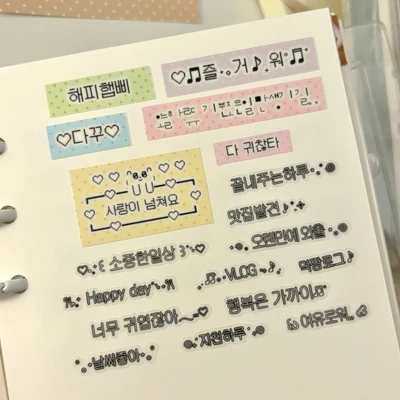 해피햄삐
♡♫즐거워♪
♡다꾸♡
다 귀찮타
사랑이 넘쳐요
끝내주는하루
맛집발견♪
소중한일상
오랜만에 외출
Happy day
VLOG
먹깡로그♪
너무 귀엽잖아~♡
행복은 가까이♫
날씨좋아
자전하루
여유로워